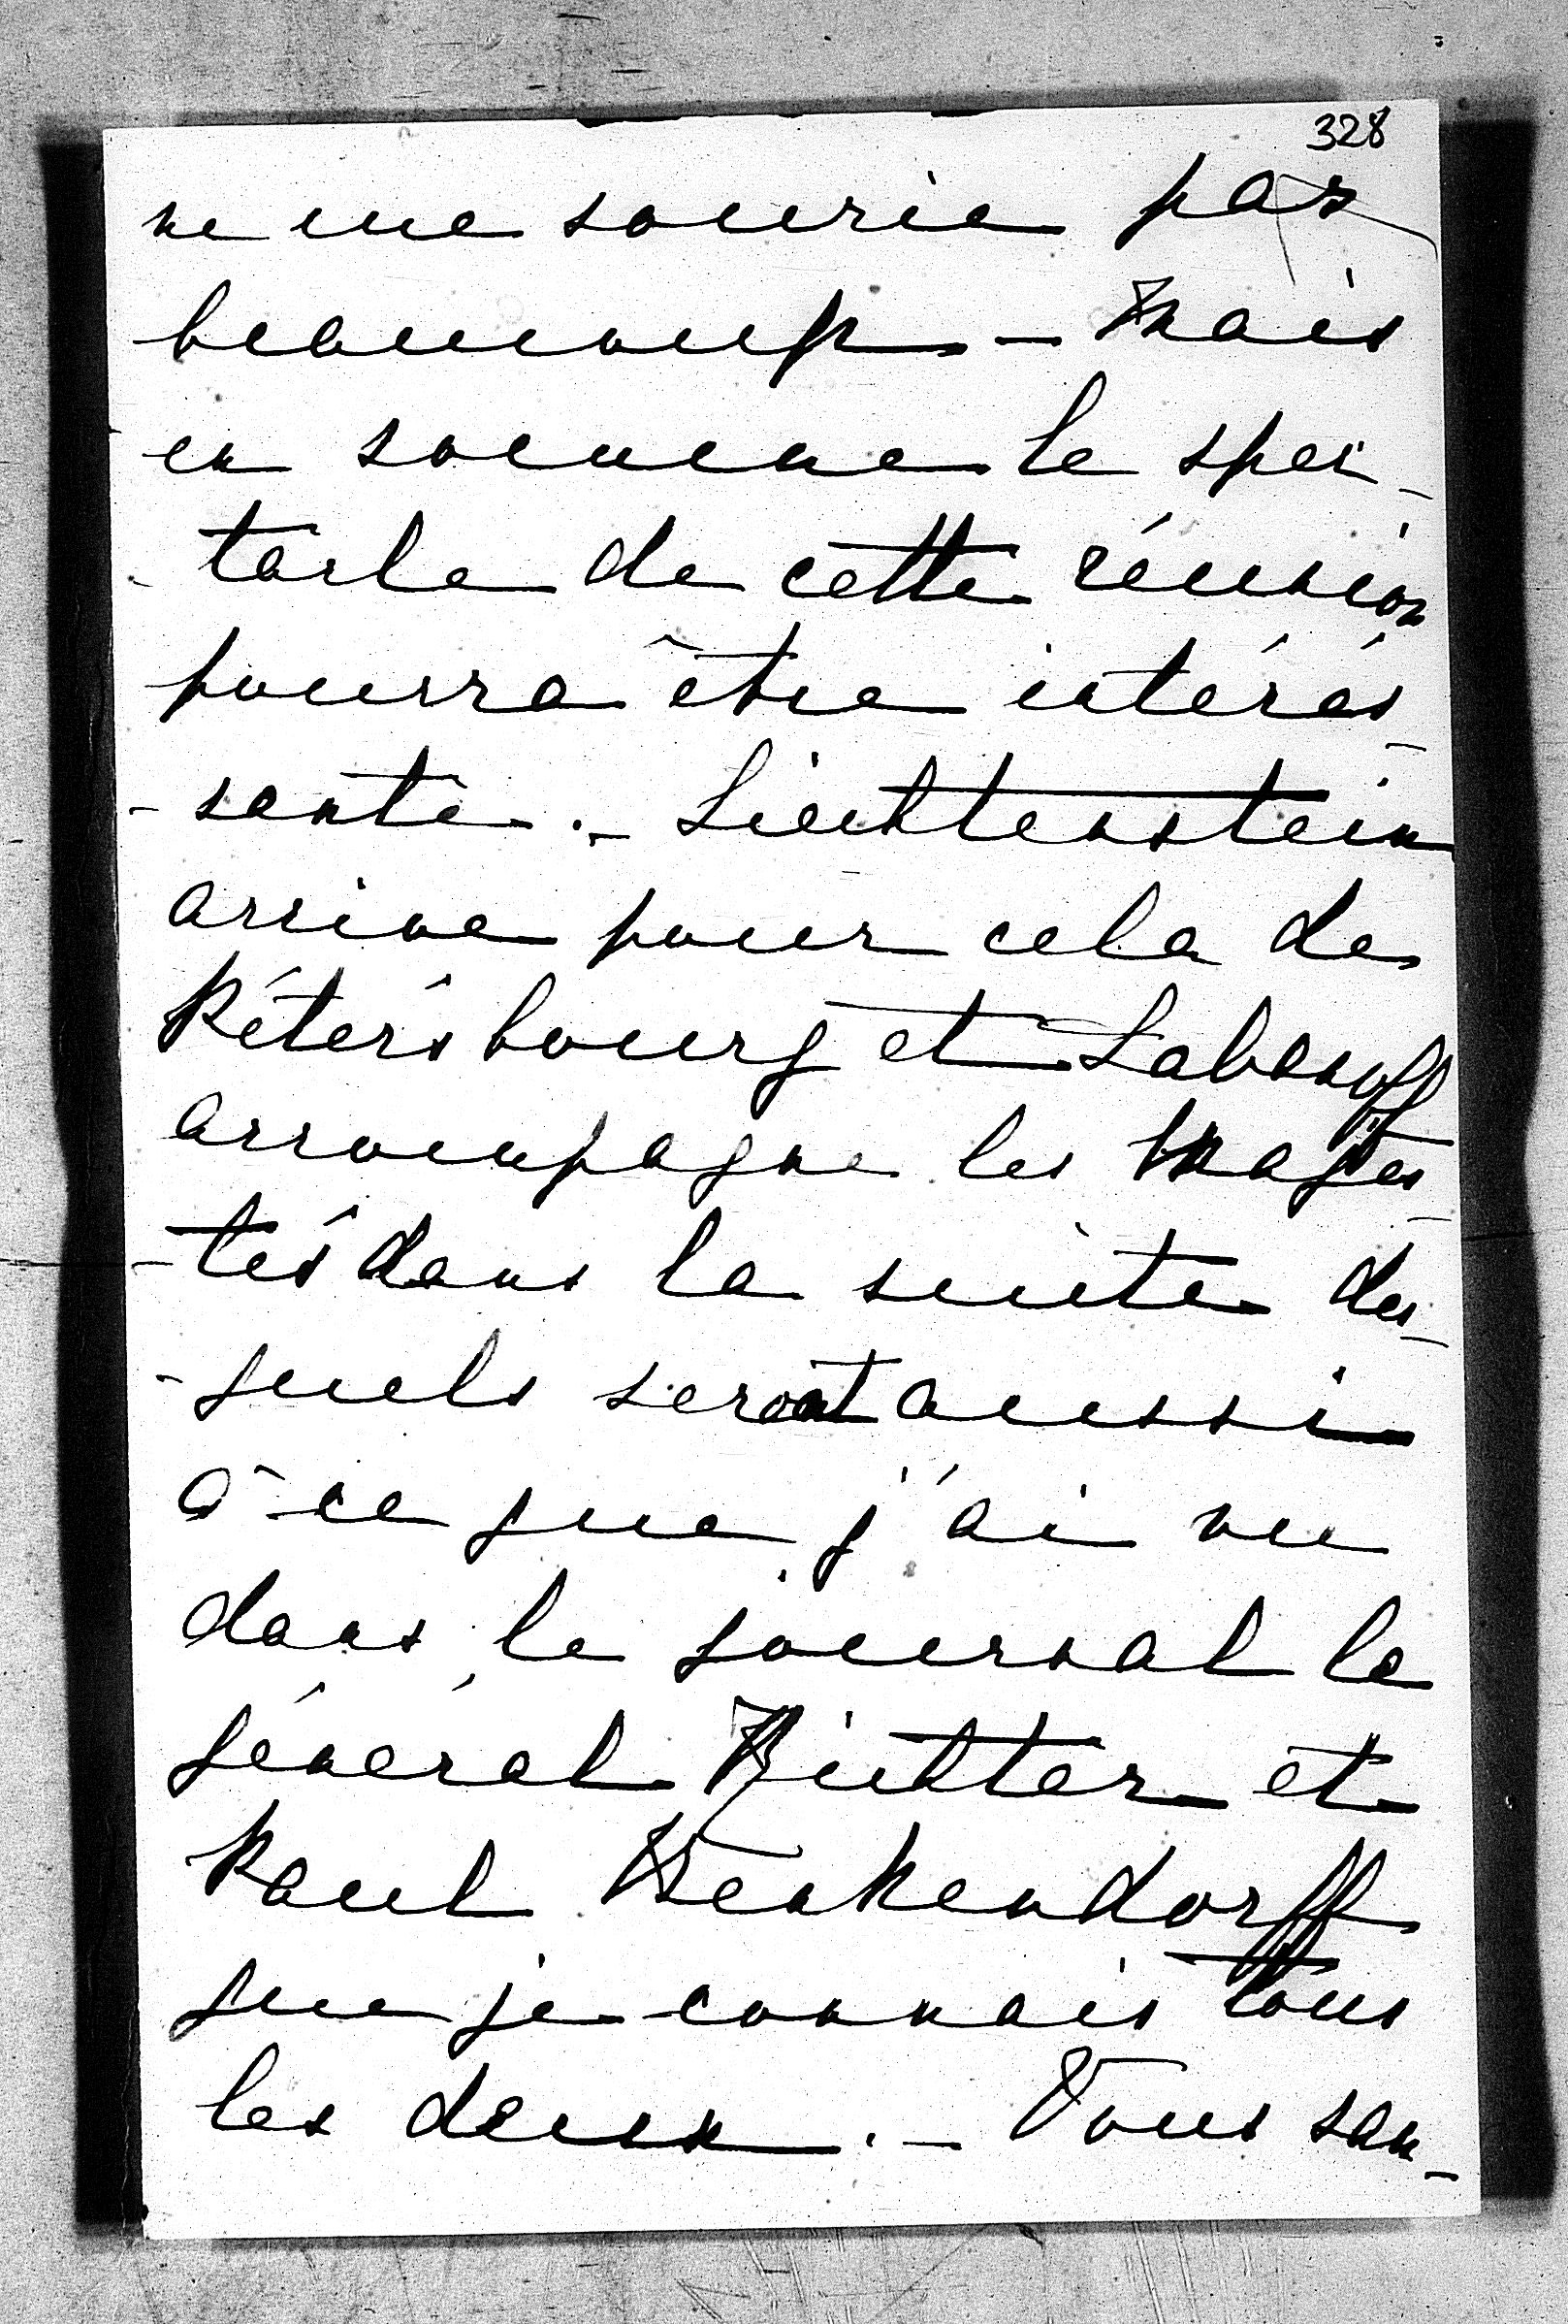 328
ne me sourie pas
beaucoup – Mais
en somme le spec-
-tacle de cette réunion
pourra être intéres-
-sante. – Liechtenstein
arrive pour cela de
Pétersbourg et Labanoff
accompagne les Majes-
-tés dans la suite des-
-quels seront aussi
à ce que j'ai vu
dans le journal le
général Richter et
Paul Benkendorff
que je connais tous
les deux. – Vous sau-